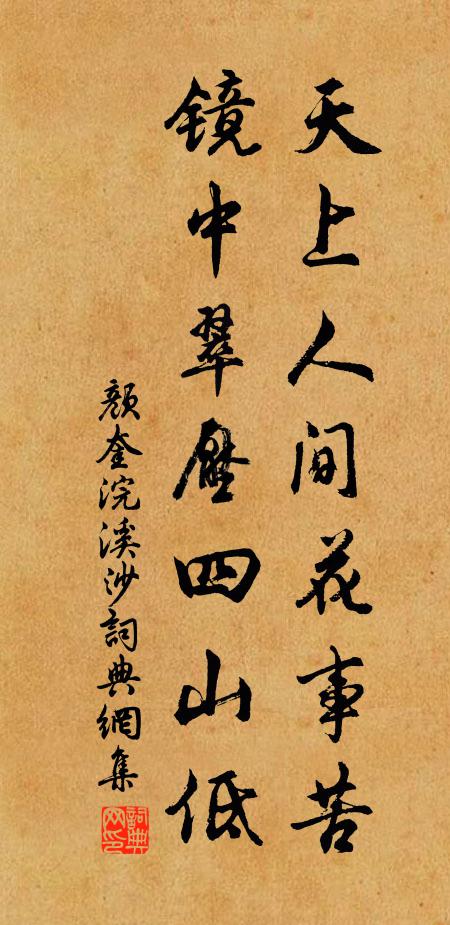 天上人间花事苦
镜中翠壓四山低
颜奎浣溪沙詞典網集
詞典网印